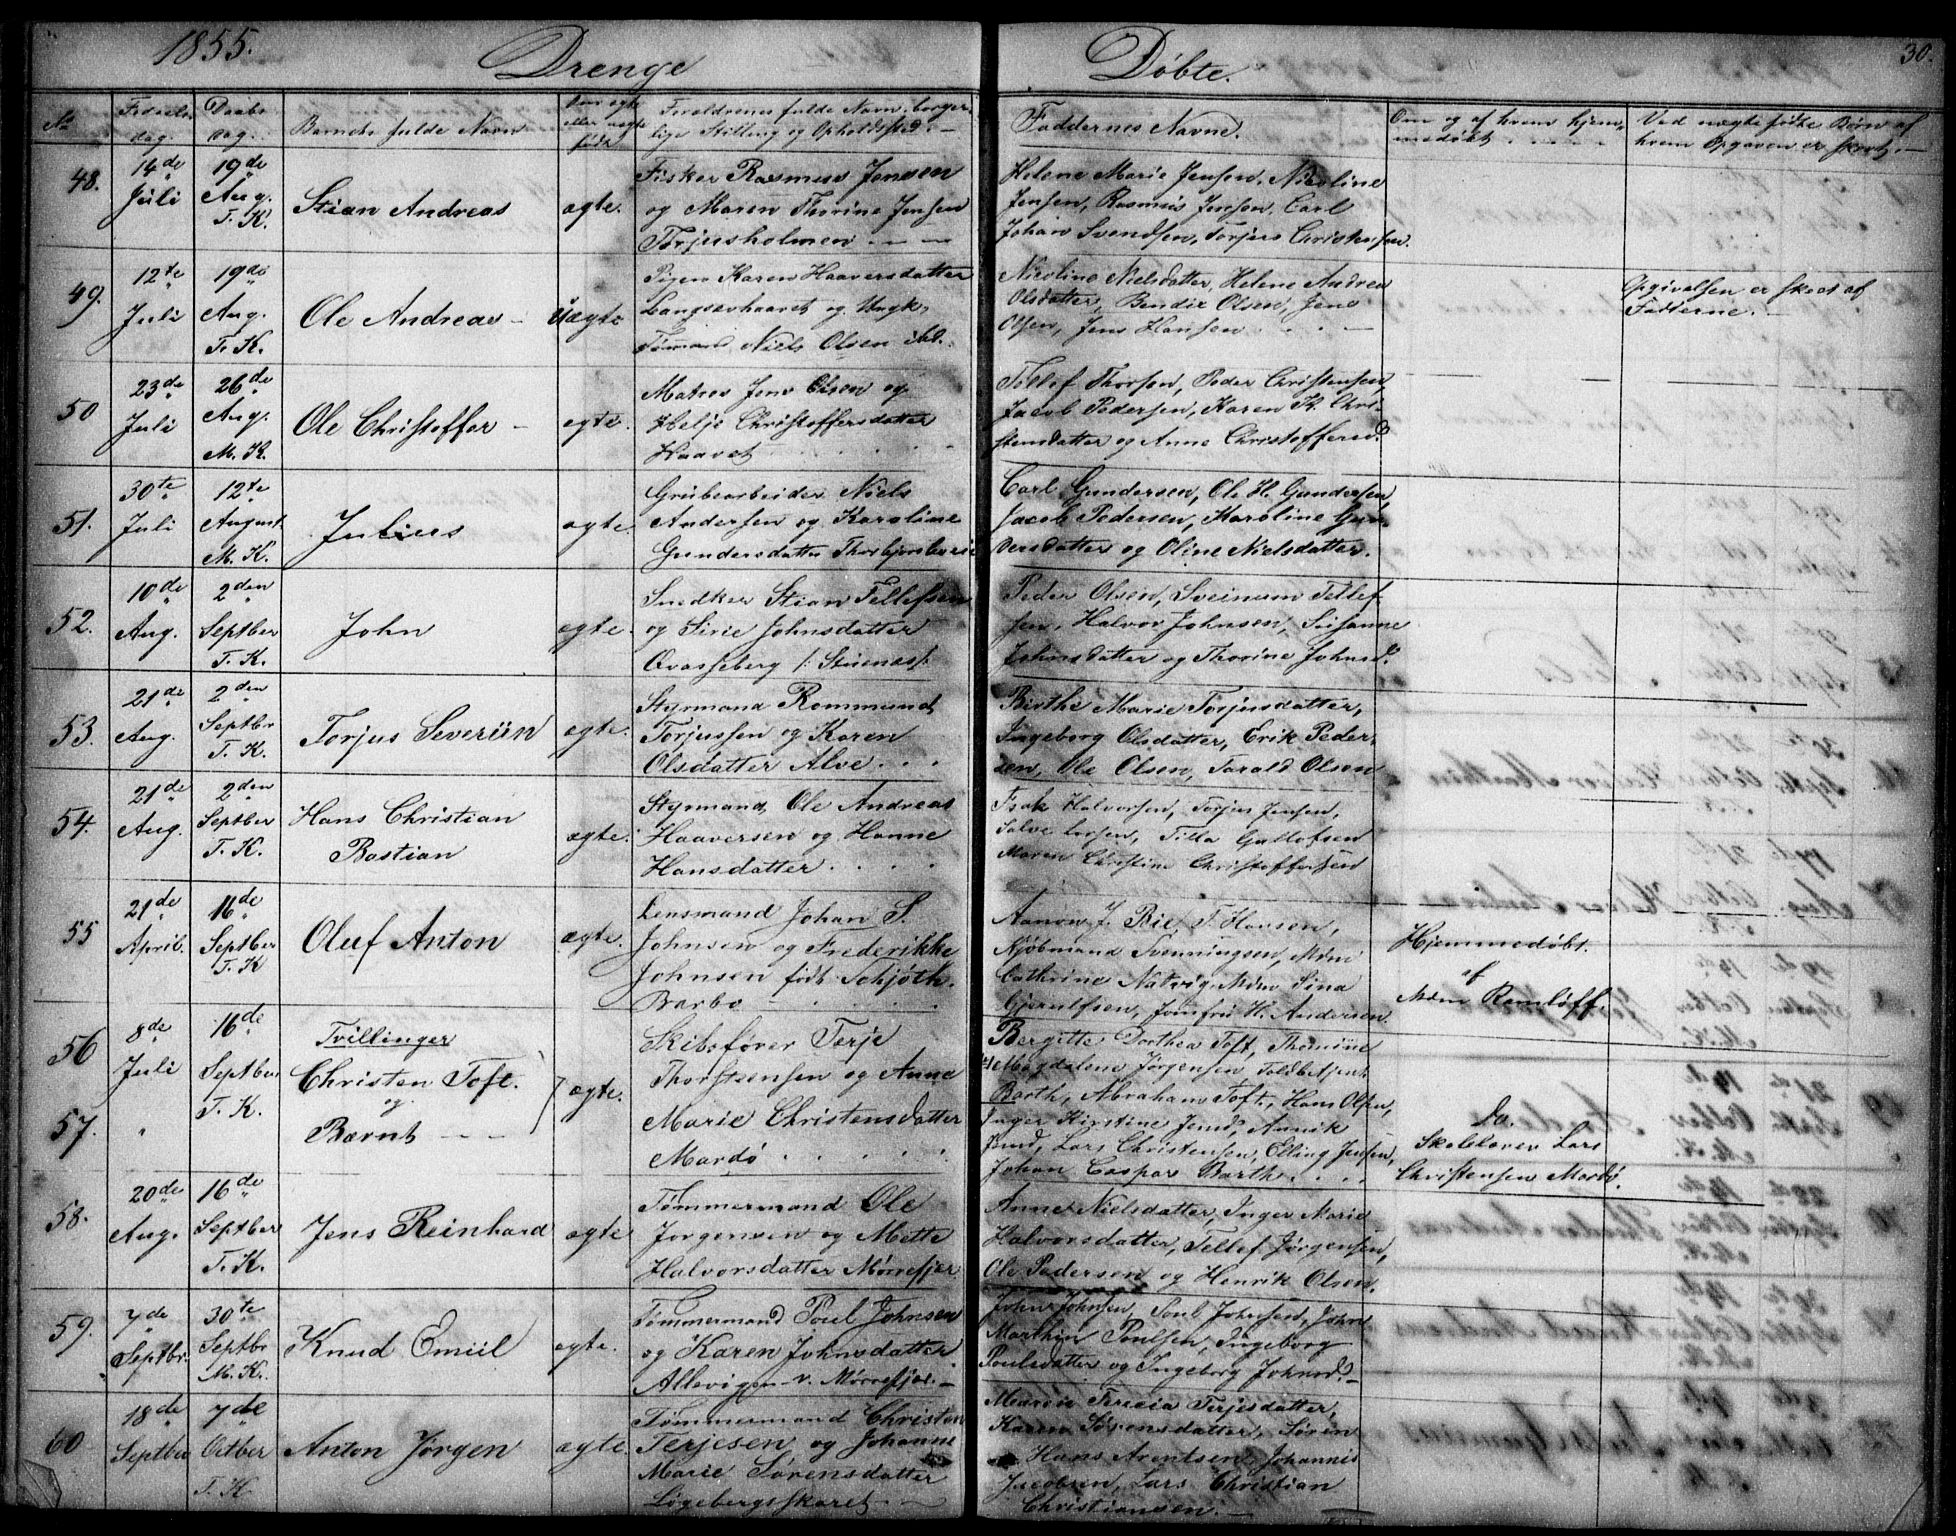 1855.
Drenge
Døbte.
30.
No
Fødsels
dag.
Daabs
dag.
Barnets fulde Navn
Om ægte
eller uægte
født
Forældrenes fulde Navn, borger-
lige Stilling og Opholdssted.
Faddernes Navne.
Om og af hvem hjem-
medøbt
Ved uægte fødte Børn af
hvem Opgaven er skeet.
48.
14de
Juli
19de
Aug.
T. K.
Stian Andreas
ægte.
Fisker Rasmus Jensen
og Maren Thorine Jensen
Torjusholmen
Helene Marie Jensen, Nicoline
Jensen, Rasmus Jensen, Carl
Johan Svendsen, Torjus Christensen.
49.
12te
Juli
19de
Aug.
T. K.
Ole Andreas
Uægte
Pigen Karen Haaversdatter
Langsævhaavet og Ungk.
Tømmand Niels Olsen ibd.
Nicoline Nielsdatter, Helene Andrea
Olsdatter, Bendix Olsen, Jens
Olsen, Jens Hansen
Opgivelsen er skeet af
Fatterne.
50
23de
Juli
26de
Aug.
M. K.
Ole Christoffer
ægte.
Matros Jens Olsen og
Helje Christoffersdatter
Haavet
Tellef Thorsen, Peder Christensen,
Jacob Pedersen, Karen K. Chri-
stensdatter og Anne Christoffersd.
51.
30te
Juli
12te
August
M. K.
Julius
ægte.
Grubearbeider Niels
Andersen og Karoline
Gundersdatter Thorbjørnsbroe
Carl Gundersen, Ole H. Gundersen,
Jacob Pedersen, Karoline Gun-
dersdatter og Oline Nielsdatter.
52.
10de
Aug.
2den
Septber
T. K.
John
ægte.
Snedker Stian Tellefsen
og Sirie Johnsdatter
Qvasseberg /: Stuenæs :/
Peder Olsen, Sveinum Tellef-
sen, Halvor Johnsen, Susanne
Johnsdatter og Thorine Johnsd.
53.
21de
Aug.
2den
Septbr
T. K.
Torjus Severiin
ægte.
Styrmand Rommund
Torjussen og Karen
Olsdatter Alve
Birthe Marie Torjusdatter,
Ingeborg Olsdatter, Erik Peder-
sen, Ole Olsen, Tarald Olsen
54.
21de
Aug.
2den
Septber
T. K.
Hans Christian
Bastian
ægte.
Styrmand Ole Andreas
Haaversen og Hanne
Hansdatter
Isak Halvorsen, Torjus Jensen,
Salve Larsen, Tilla Gullofsen
Maren Christine Christoffersen
55
21de
April.
16de
Septber
T. K
Oluf Anton
ægte.
Lensmand Johan S.
Johnsen og Frederikke
Johnsen født Schjøth.
Barbo
Aanon J. Bie, T. Hansen,
Kjøbmand Svenningsen, Mdm
Cathrine Natvig, Mdm Sina
Gjerulfsen, Jomfru H. Andersen.
Hjemmedøbt.
af
Mdm Remløff.
56
57.
8de
Juli
"
16de
Septber
T. K.
Tvillinger
Christen Toft.
og
Bærnt
ægte.
Skibsfører Terje
Thorstensen og Anne
Marie Christensdatter
Mardø
Bergitte Dorthea Toft, Thomine
Magdalene Jørgensen, Toldbetjent
Barth, Abraham Toft, Hans Olsen,
Inger Kirstine Jensd, Annik
Jensd, Lars Christensen, Elling Jensen,
Johan Caspar Barth.
Do.
Skolelærer Lars
Christensen Mardø.
58.
20de
Aug.
16de
Septber
T. K.
Jens Reinhard
ægte
Tømmermand Ole
Jørgensen og Mette
Halvorsdatter Mørrefjær
Anne Nielsdatter, Inger Marie
Halvorsdatter, Tellef Jørgensen,
Ole Pedersen og Henrik Olsen.
59.
7de
Septbr.
30te
Septbr
M. K.
Knud Emiil
ægte.
Tømmermand Poul Johnsen
og Karen Johnsdatter
Allevigen v. Mørrefjær.
John Johnsen, Poul Johnsen, John
Marthin Poulsen, Ingeborg
Poulsdatter og Ingeborg Johnsd.
60
18de
Septber
7de
Octber
T. K
Anton Jørgen
ægte.
Tømmermand Christen
Terjesen og Johanne
Marie Sørensdatter
Løgebergsskaret
Maren Tericia Terjesdatter,
Karen Sørensdatter, Søren
Hans Arentsen, Johannis
Jacobsen, Lars Christian
Christiansen.